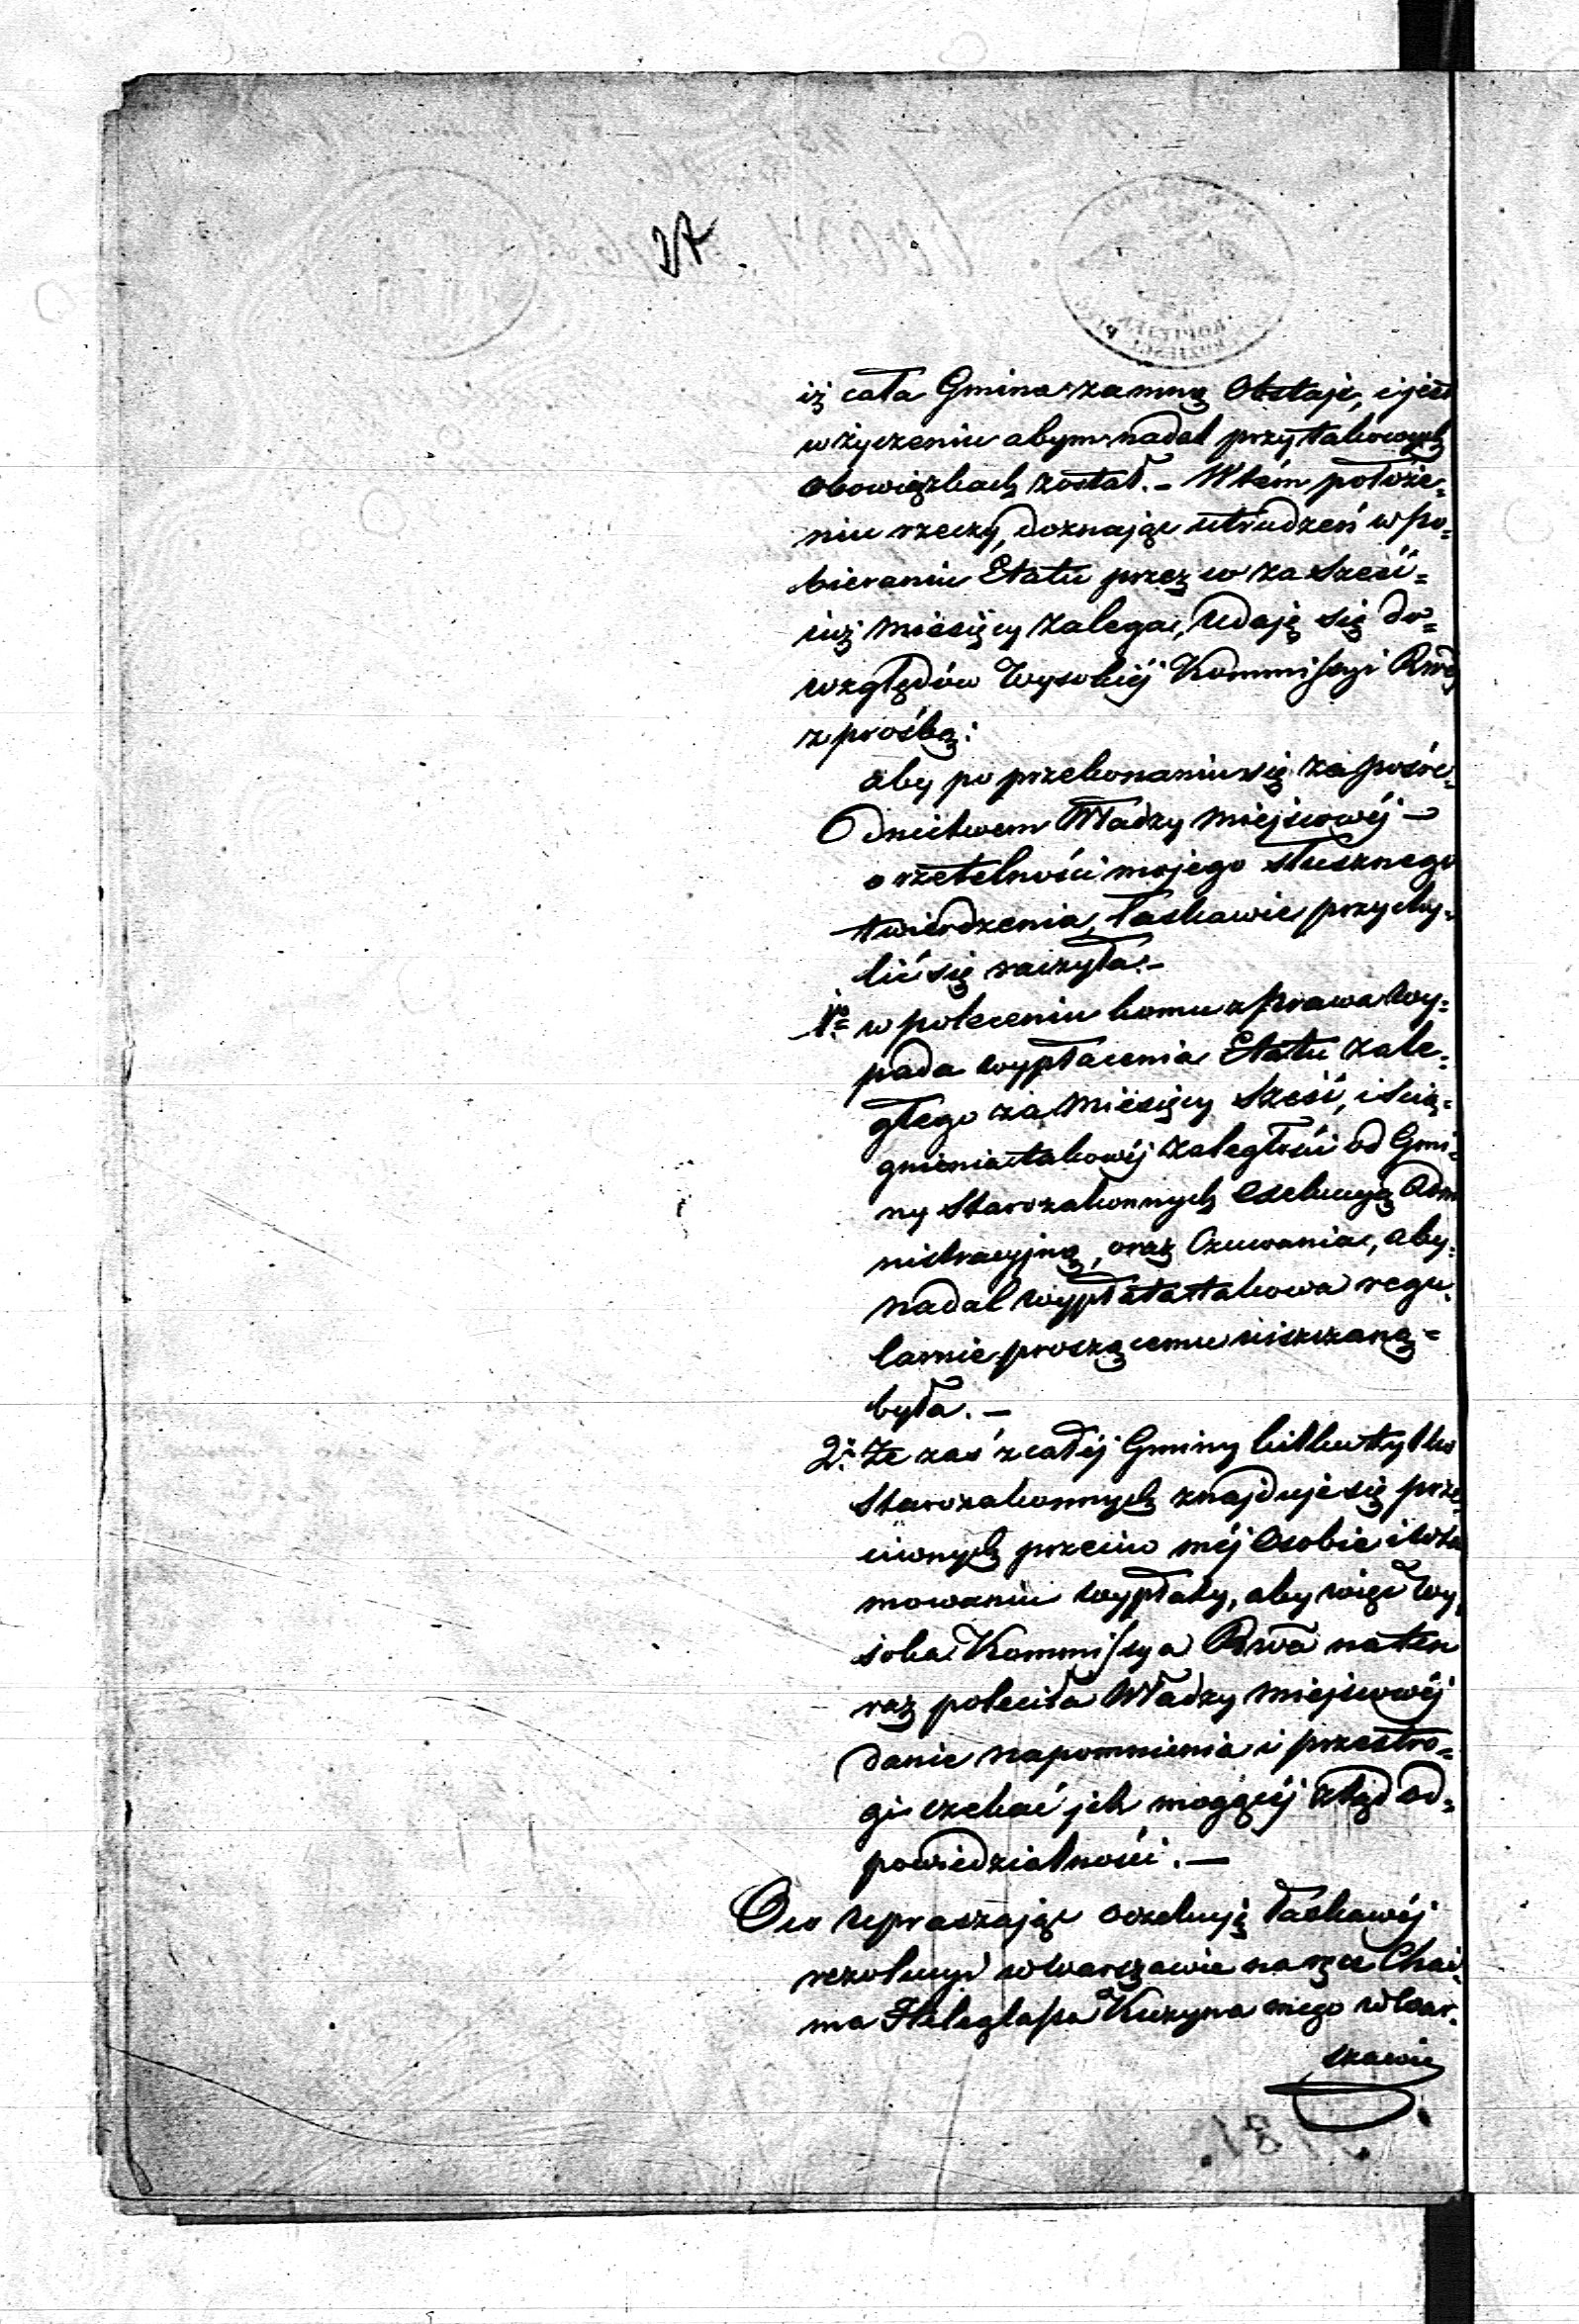 iż cała Gmina zamną Obstaje, i jest
w życzeniu abym nadal przy takowych
Obowiązkach został. – W tém położe=
niu rzeczy, doznając utrudzeń w po=
bieraniu Etatu przez co za sześć=
iuż miesięcy zalega, udaję się do=
względów Wysokiéj Kommissyi Rwéj
z prośbą:
aby po przekonaniu się za pośre=
dnictwem Władzy miejscowéj –
o rzetelności mojego słusznego
twierdzenia, łaskawie przychy=
lić się raczyła. –
1o w poleceniu komu z prawa wy=
pada wypłacenia Etatu zale=
głego za Miesięcy sześć, i ścią=
gnienia takowéj zaległości od Gmi=
ny Starozakonnych exekucyą Adm
nistracyjną, oraz Czuwania, aby
nadal wypłata takowa regu=
larnie proszącemu uiszczaną=
była. –
2o Że zaś z całéj Gminy kilku tylko
Starozakonnych znajduje się prze
ciwnych przeciw méj Osobie i wta
mowaniu wypłaty, aby więc Wy
soka Kommissya Rwa na ten
raz poleciła Władzy miejscowéj
danie napomnienia i przestro=
gi czekać ich mogącéj ztąd od=
powiedzialności. –
Oco upraszając oczekuję łaskawéj
rezolucyi w Warszawie na ręce Chai
ma Kuzyna mego w War=
szawie